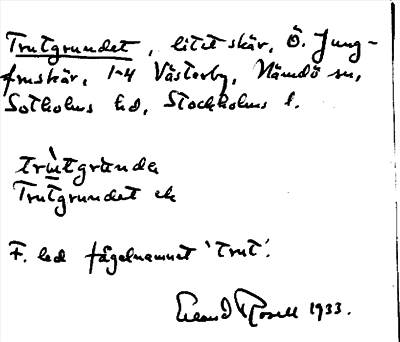 Trutgrundet, litet skär, Ö. Jung-
fruskär, 1-4 Västerby, Nämdö sn,
Sotholms hd, Stockholms l.
trùtgrùnde
Trutgrundet ek
F. led fågelnamnet 'trut'.
Erland Rosell 1933.